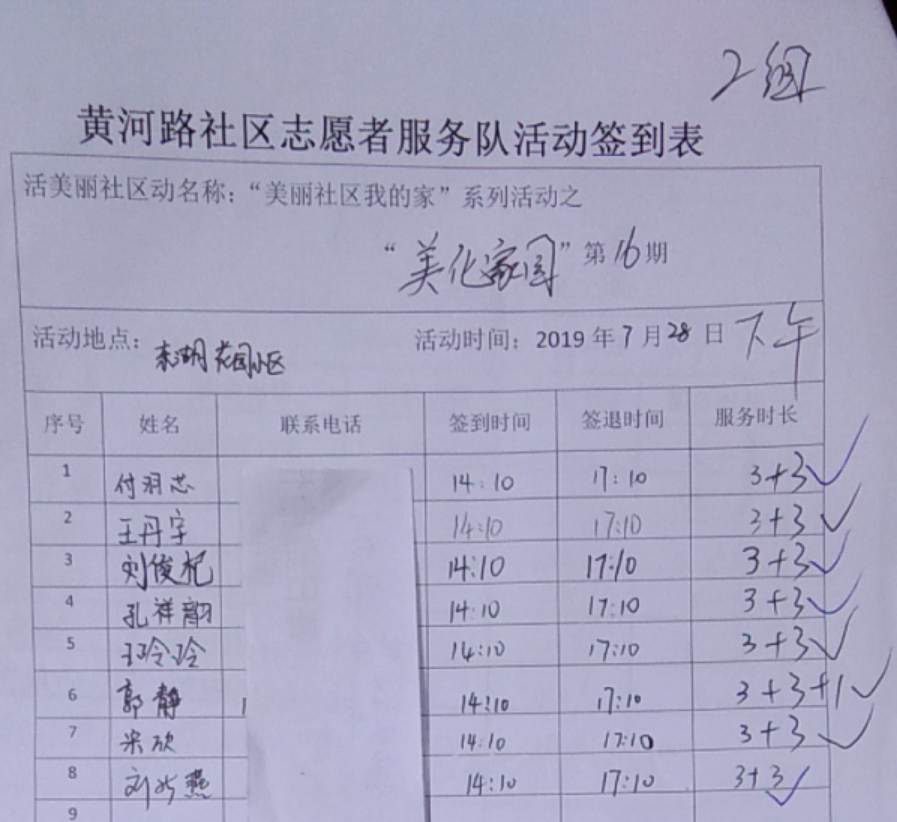 2组
黄河路社区志愿者服务队活动签到表
活美丽社区动名称：“美丽社区我的家”系列活动之
“美化家园”第16期
活动地点：东湖花园小区 活动时间：2019年7月28日 下午
序号 姓名 联系电话 签到时间 签退时间 服务时长
1 付羽芯 14:10 17:10 3+3
2 王丹宇 14:10 17:10 3+3
3 刘俊杞 14:10 17:10 3+3
4 孔祥韵 14:10 17:10 3+3
5 玲玲 14:10 17:10 3+3
6 郭静 14:10 17:10 3+3+1
7 宋欣 14:10 17:10 3+3
8 刘燕 14:10 17:10 3+3
9